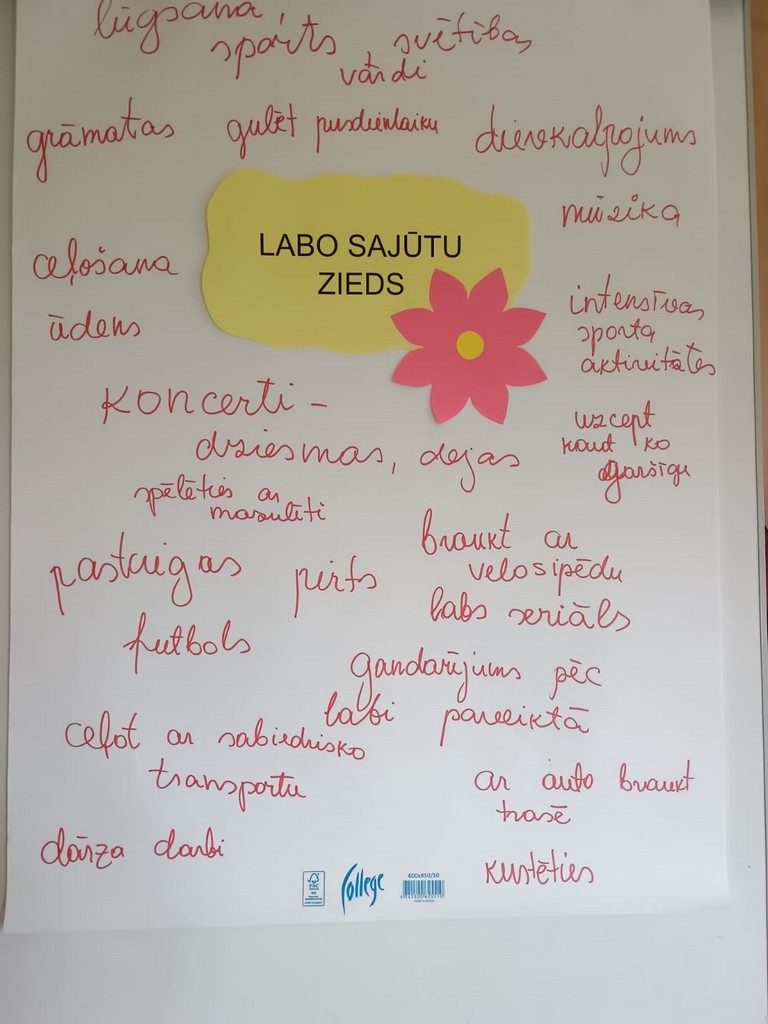 lūgšana,
sports, svētības
vārdi
grāmatas gulēt pusdienlaiku dievkalpojums
mūzika
LABO SAJŪTU
ZIEDS
ceļošana
ūdens
intensīvas
sporta
aktivitātes
koncerti -
dziesmas, dejas
uzcept
kaut ko
garšīgu
spēlēties ar
mazulīti
braukt ar
velosipēdu
pastaigas pirts
labs seriāls
futbols
gandarījums pēc
labi paveiktā
ceļot ar sabiedrisko
transportu
ar auto braukt
trasē
dārza darbi
kustēties
FSC
College
600x850/50